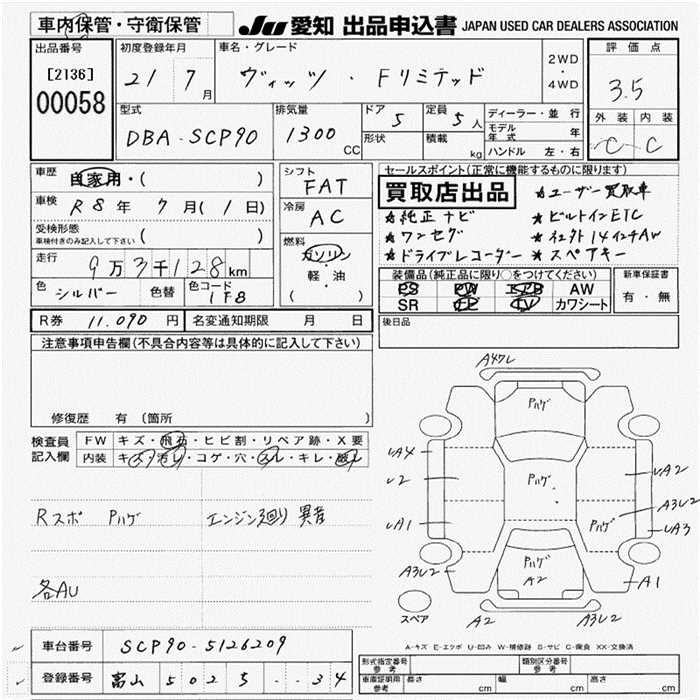 車内保管・守衛保管
JU 愛知 出品申込書 JAPAN USED CAR DEALERS ASSOCIATION
出品番号
[2136]
00058
初度登録年月
21 7 月
車名・グレード
ヴィッツ ・ Fリミテッド
2WD
・
4WD
評価点
3.5
外装 内装
C C
型式
DBA-SCP90
排気量
1300 CC
ドア 5
形状
定員 5 人
積載 kg
ディーラー・並行
モデル年式 年
ハンドル 左・右
車歴
自家用・( )
車検 R8 年 7 月(1 日)
受検形態
車検付きのみ記入して下さい ( )
走行
9万3千128km
色 シルバー 色替 色コード 1F8
シフト
FAT
冷房
AC
燃料
ガソリン
・
軽・油
( )
セールスポイント(正常に機能するものに限ります)
買取店出品 ★ユーザー買取車
★純正ナビ ★ビルトインETC
★ワンセグ ★社外14インチAW
★ドライブレコーダー ★スペアキー
装備品(純正品に限り○をつけてください)
PS PW AW
SR TV カワシート
新車保証書
有・無
R券 11,090 円 名変通知期限 月 日
後日品
注意事項申告欄(不具合内容等は具体的に記入して下さい)
修復歴 有 (箇所 )
検査員
記入欄
FW キズ・飛石・ヒビ割・リペア跡・X要
内装 キズ・汚レ・コゲ・穴・スレ・キレ・
Rスポ Pハゲ エンジン廻り異音
各AU
A47L
Pハゲ
UA4
U2
UA1
A3U2
Pハゲ
UA2
A3U2
Pハゲ
UA3
Pハゲ
A2
A1
スペア
A2
A3U2
A-キズ E-エクボ U-凹み W-補修跡 S-サビ C-腐食 XX-交換済
車台番号 SCP90-5126209
登録番号 富山 502 ち ・・34
形式指定番号 参考
類別区分番号 参考
車庫証明用 参考 長さ cm 幅 cm 高さ cm